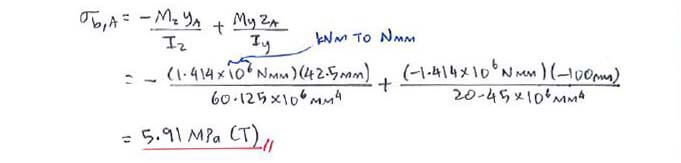 σb,A = -Mz yA / Iz + My zA / Iy
kNm TO Nmm
= - (1.414×10⁶ Nmm)(42.5mm) / 60.125×10⁶ mm⁴ + (-1.414×10⁶ Nmm)(-100mm) / 20.45×10⁶ mm⁴
= 5.91 MPa (T) //